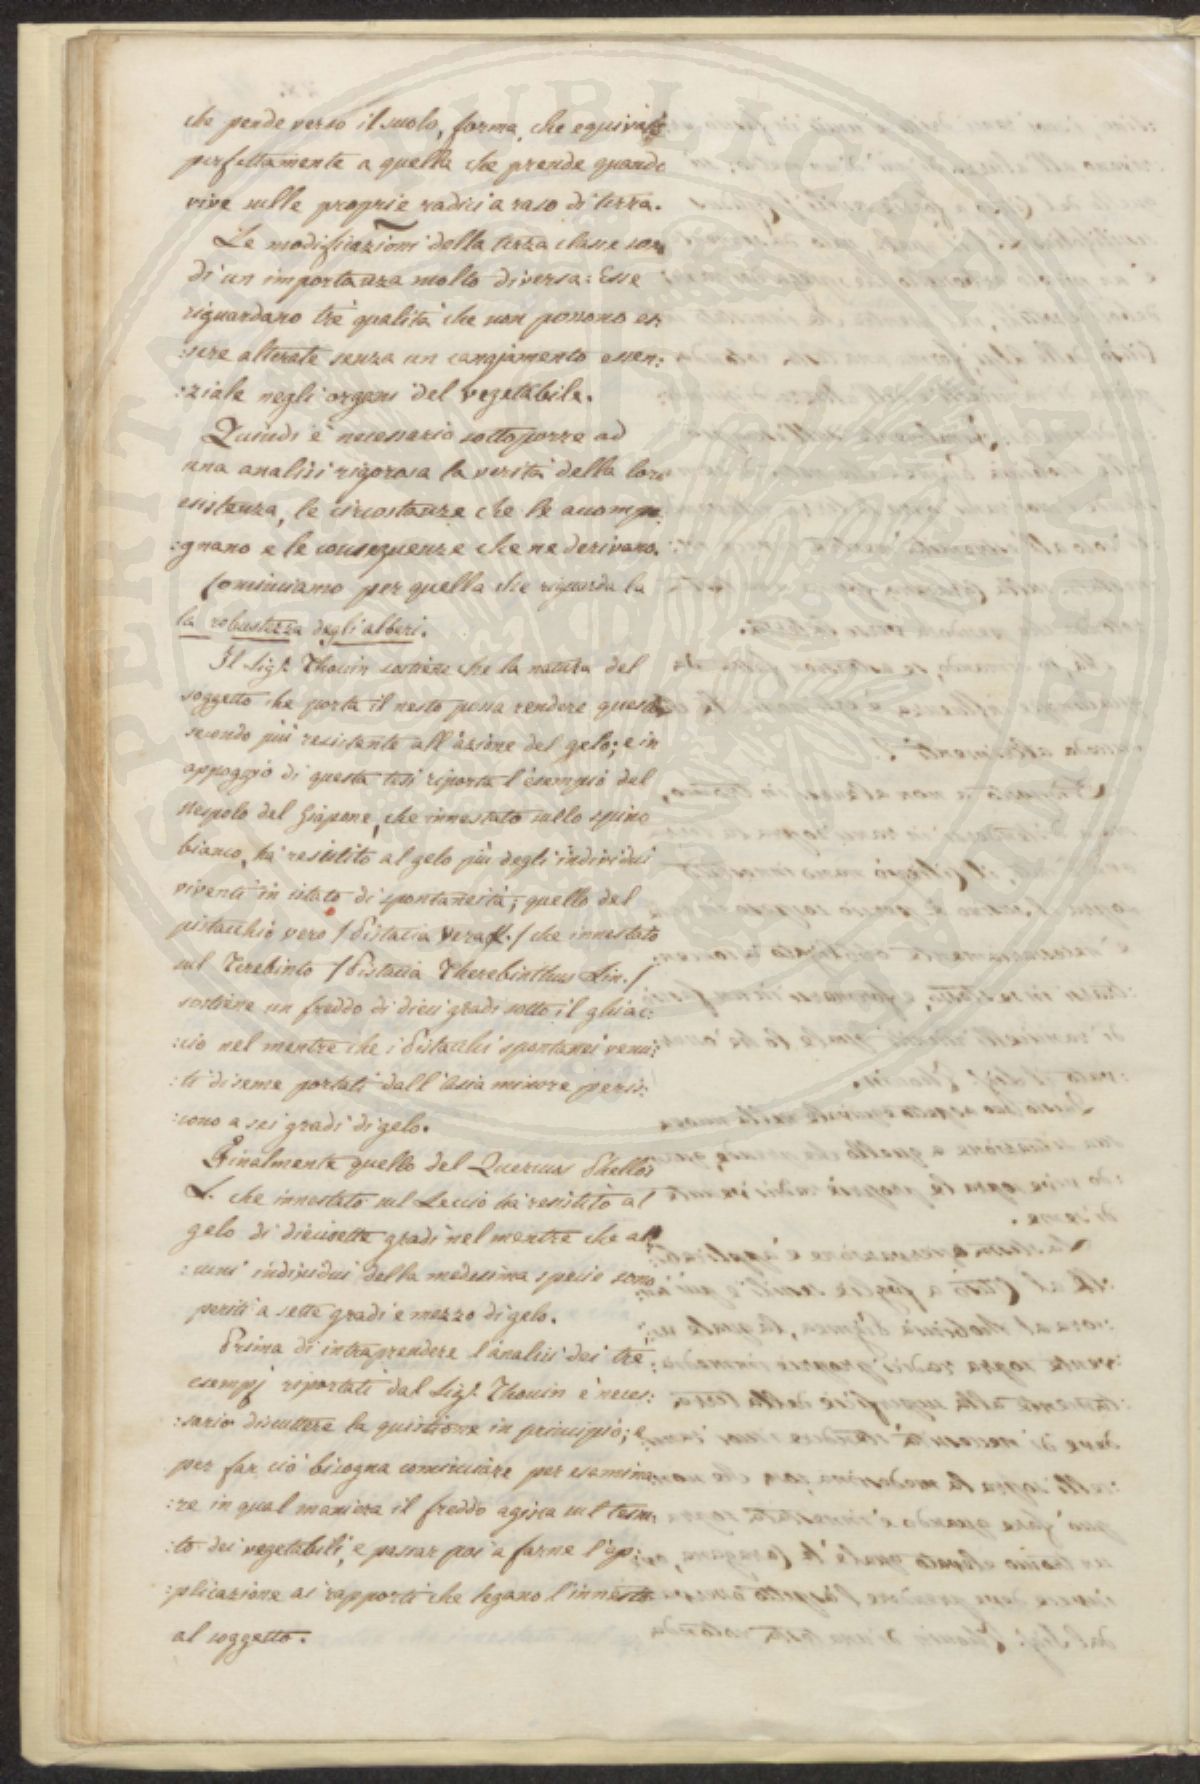 che pende verso il suolo, forma, che equivale
perfettamente a quella che prende quando
vive sulle proprie radici a raso di terra.
Le modificazioni della terza classe sono
di un importanza molto diversa: Esse
riguardano trè qualità che non possono es:
:sere alterate senza un cangiamento essen:
:ziale negli organi del vegetabile.
Quindi è necessario sottoporre ad
una analisi rigorosa la verità della loro
esistenza, le circostanze che le accompa:
:gnano e le conseguenze che ne derivano.
Cominciamo per quella che riguarda la
la robustezza degli alberi.
Il Sigr. Thouin sostiene che la natura del
soggetto che porta il nesto possa rendere questo
secondo più resistente all'azione del gelo; e in
appoggio di questa tesi riporta l'esempio del
nespolo del Giapone, che innestato sullo spino
bianco, ha resistito al gelo più degli individui
viventi in istato di spontaneità; quello del
pistacchio vero / Pistacia vera L. / che innestato
sul Terebinto / Pistacia Therebinthus Lin. /
sostiene un freddo di dieci gradi sotto il ghiac:
:cio nel mentre che i Pistacchi spontanei venu:
:ti di seme portati dall'Asia minore peris:
:cono a sei gradi di gelo.
Finalmente quello del Quercus Phellos
L. che innestato sul Leccio ha resistito al
gelo di diecisette gradi nel mentre che al:
:cuni individui della medesima specie sono
periti a sette gradi e mezzo di gelo.
Prima di intraprendere l'analisi dei tre
esempj riportati dal Sigr. Thouin è neces:
:sario discuttere la quistione in principio; e
per far ciò bisogna cominciare per esamina:
:re in qual maniera il freddo agisca sul tessu:
:to dei vegetabili, e passar poi a farne l'ap:
:plicazione ai rapporti che legano l'innesto
al soggetto.